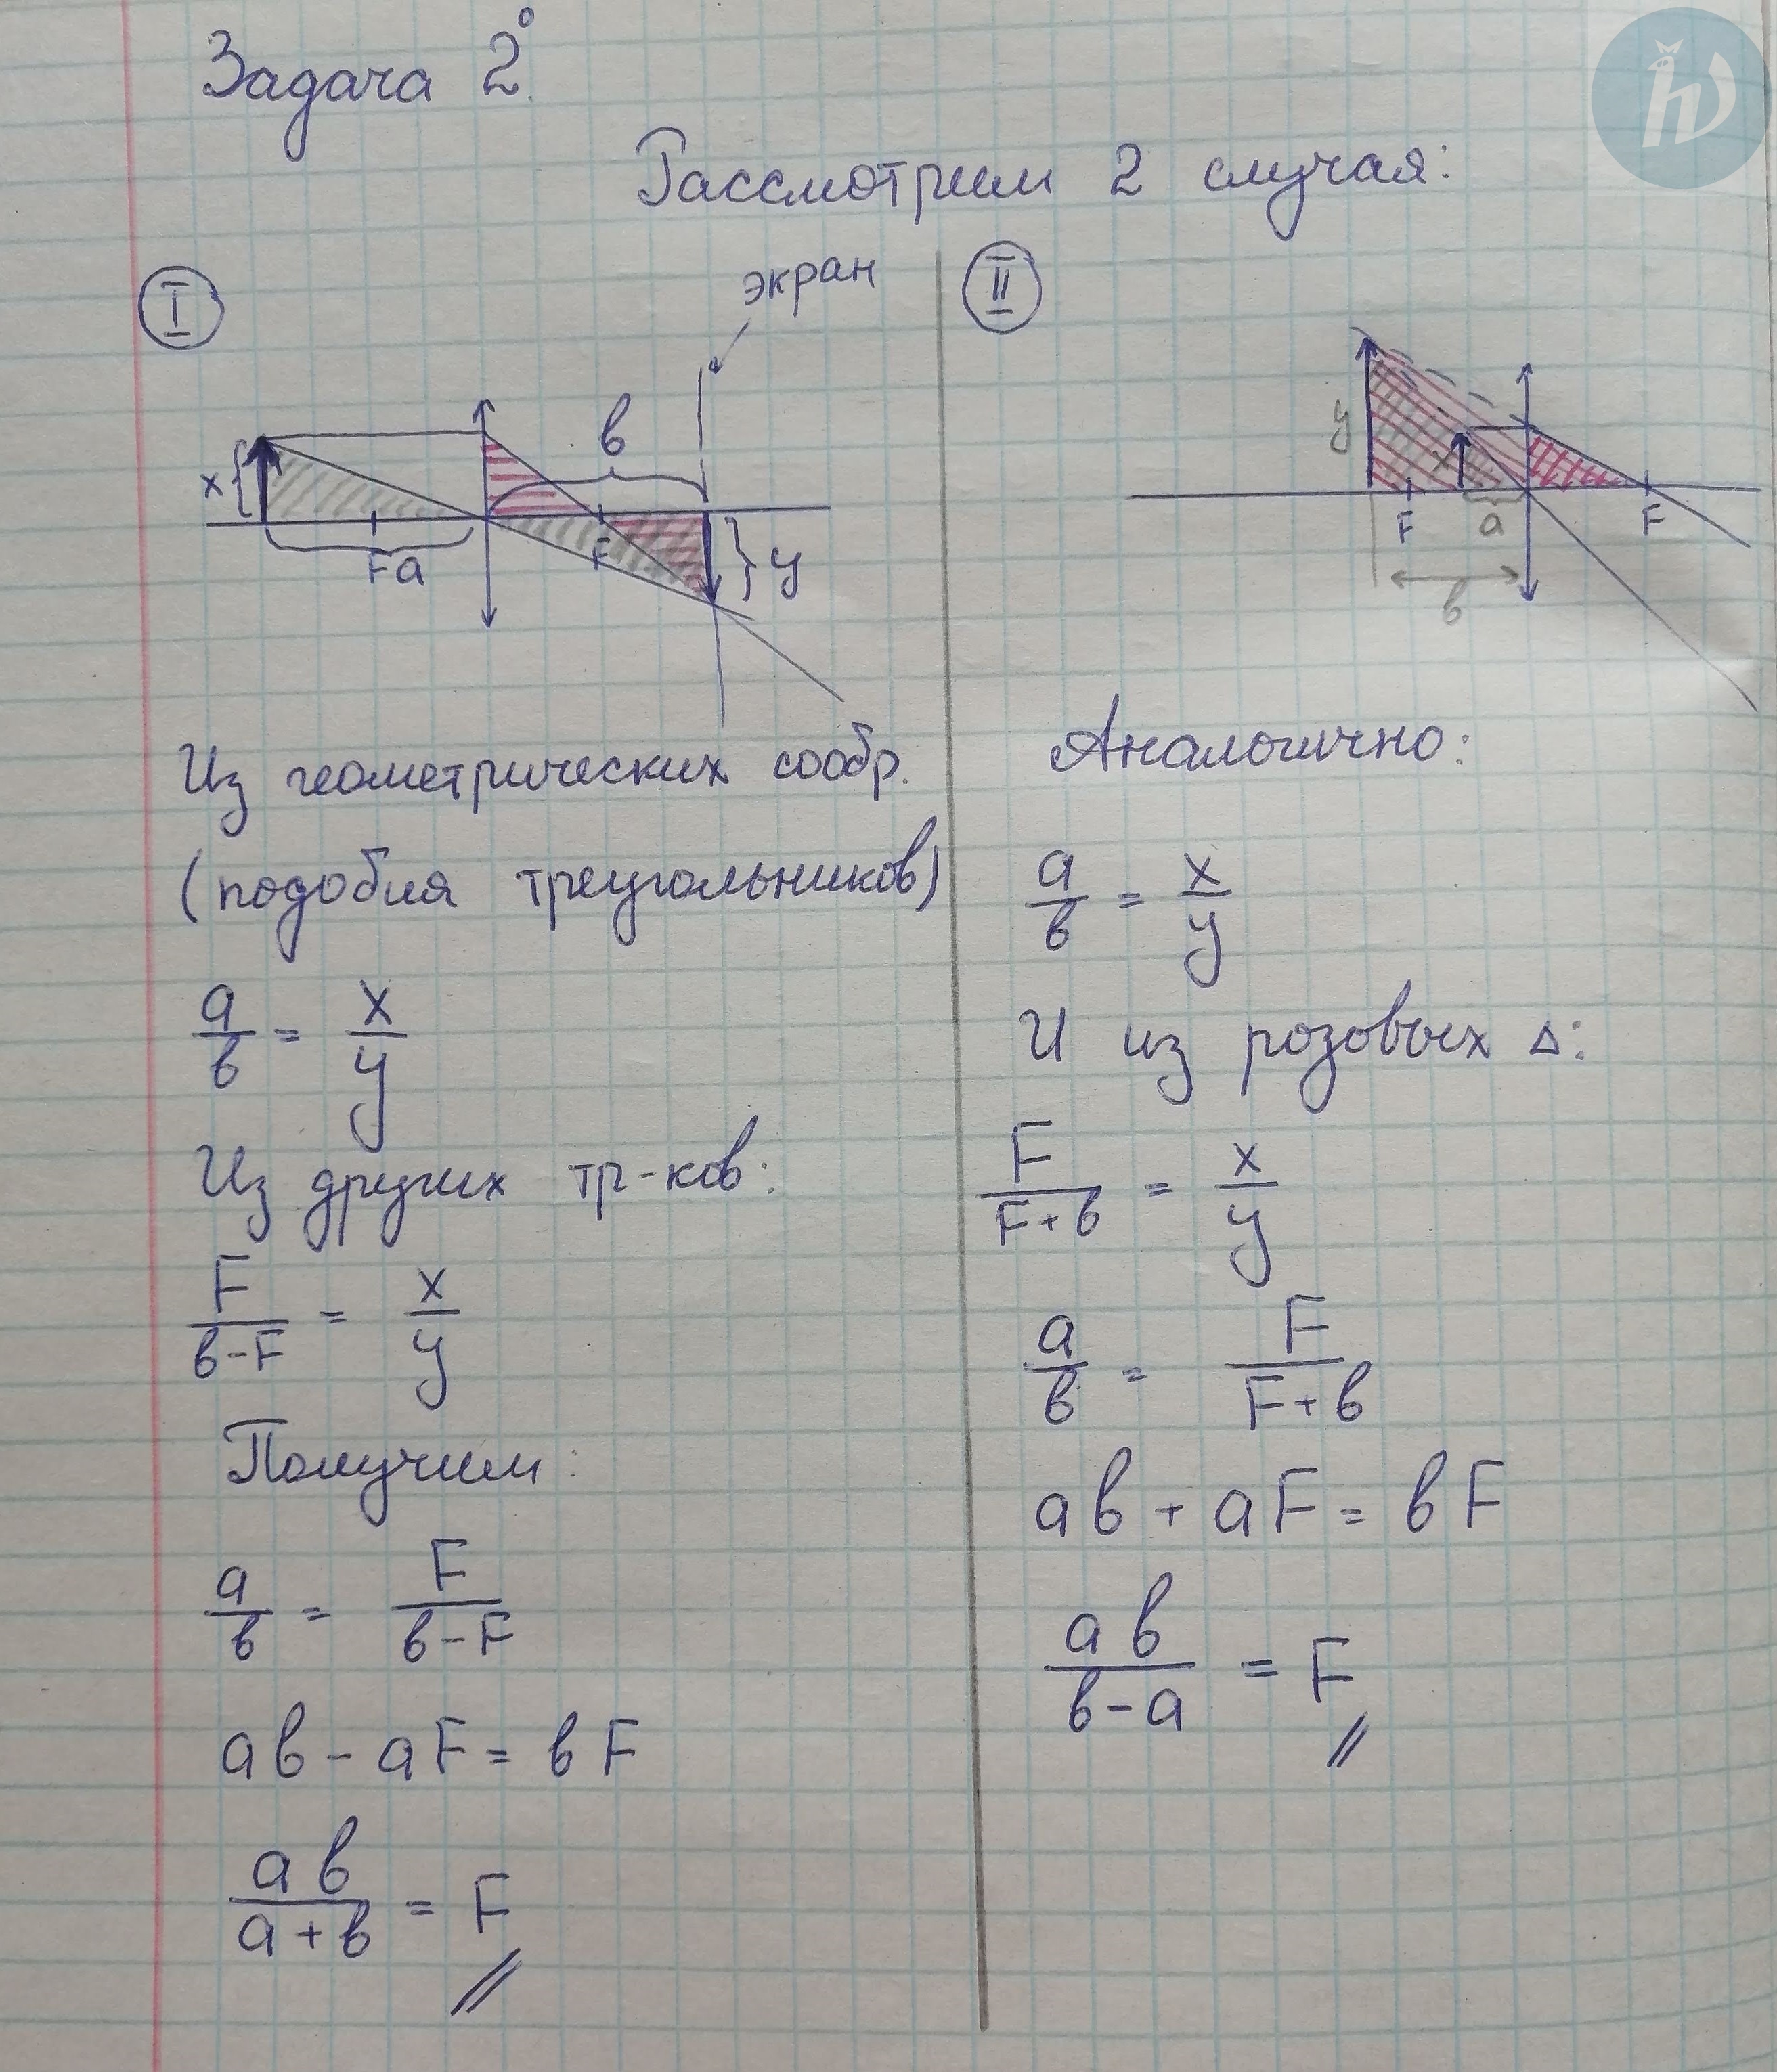 Задача 2°.
Рассмотрим 2 случая:
I
экран
x
F a
b
F
y
Из геометрических сообр.
(подобия треугольников)
a/b = x/y
Из других тр-ков:
F/(b-F) = x/y
Получим:
a/b = F/(b-F)
ab - aF = bF
ab/(a+b) = F
II
y
x
F
a
F
b
Аналогично:
a/b = x/y
И из розовых Δ:
F/(F+b) = x/y
a/b = F/(F+b)
ab + aF = bF
ab/(b-a) = F